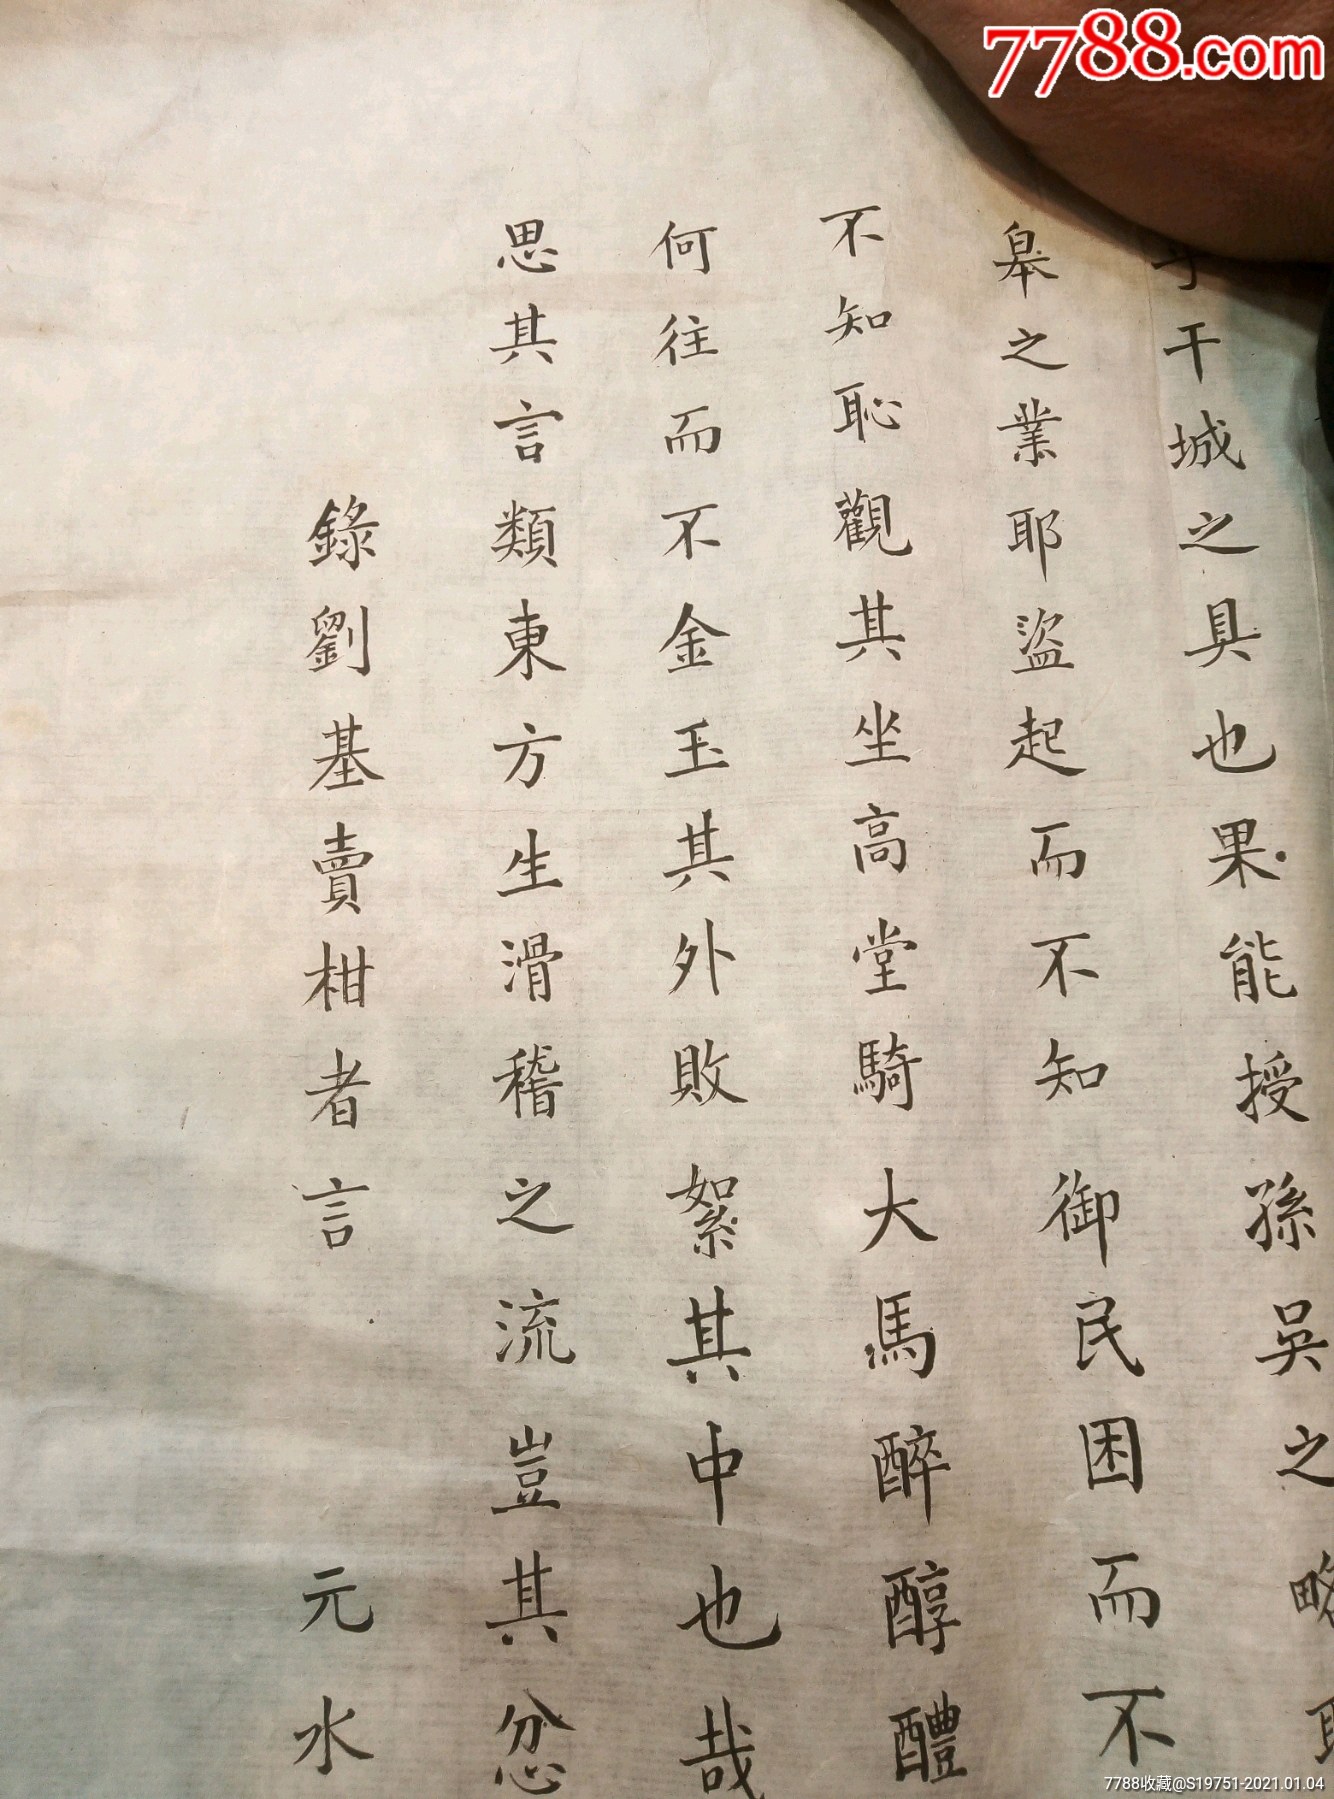 7788.com
乎干城之具也果能授孫吳之略耶
皋之業耶盜起而不知御民困而不
不知恥觀其坐高堂騎大馬醉醇醴
何往而不金玉其外敗絮其中也哉
思其言類東方生滑稽之流豈其忿
錄劉基賣柑者言 元水
7788收藏@S19751-2021.01.04